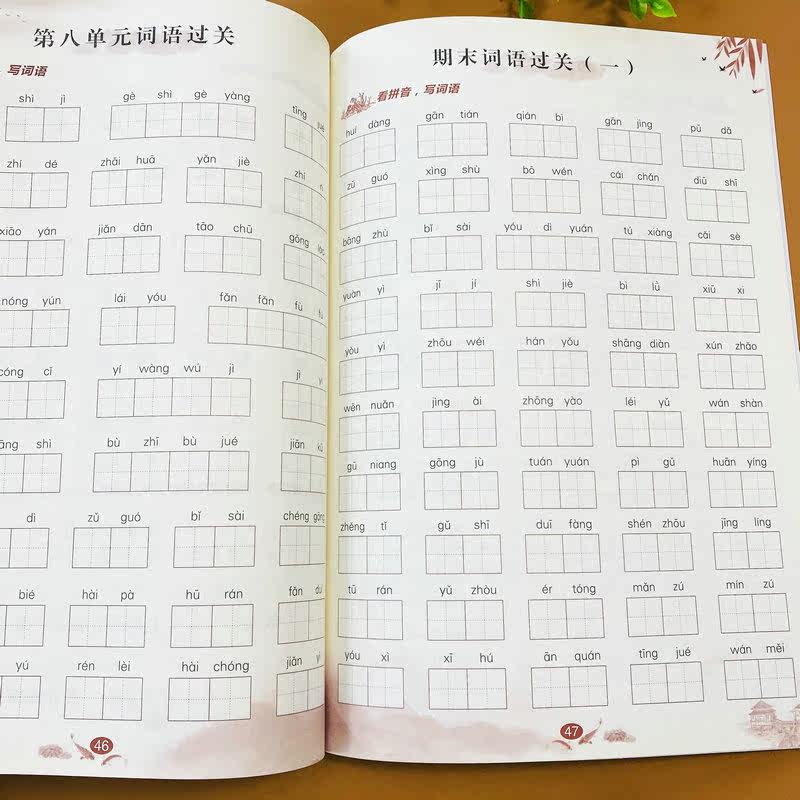 第八单元词语过关
写词语
shì jì gè shì gè yàng tǐng
zhí dé zhāi huā yǎn jiè zhí
xiāo yán jiǎn dān tāo chū gōng
nóng yún lái yóu fān fān fù fù
cóng cǐ yí wàng wú jì jì
shì bù zhī bù jué jiān
dì zǔ guó bǐ sài chéng gōng
bié hài pà hū rán
yú rén lèi hài chóng
46
期末词语过关(一)
看拼音,写词语
huí dàng gān tián qián bì gān jìng
zǔ guó xìng shù bō wén cái diū shī
bāng zhù bǐ sài yóu dì yuán tú xiàng cǎi sè
yuàn yì jī jí shì jiè bì lǜ xiū xi
yòu yì zhōu wéi hán yǒu shāng diàn xún zhǎo
wēn nuǎn jìng ài zhōng yào léi yǔ wán shàn
gū niang gōng jù tuán yuán pì gǔ huān yíng
zhēng tǐ gǔ shī duī fàng shén zhōu jīng líng
tū rán yǔ zhòu ér tóng mǎn zú mín zú
yóu xì xī hú ān quán tīng jué wán měi
47